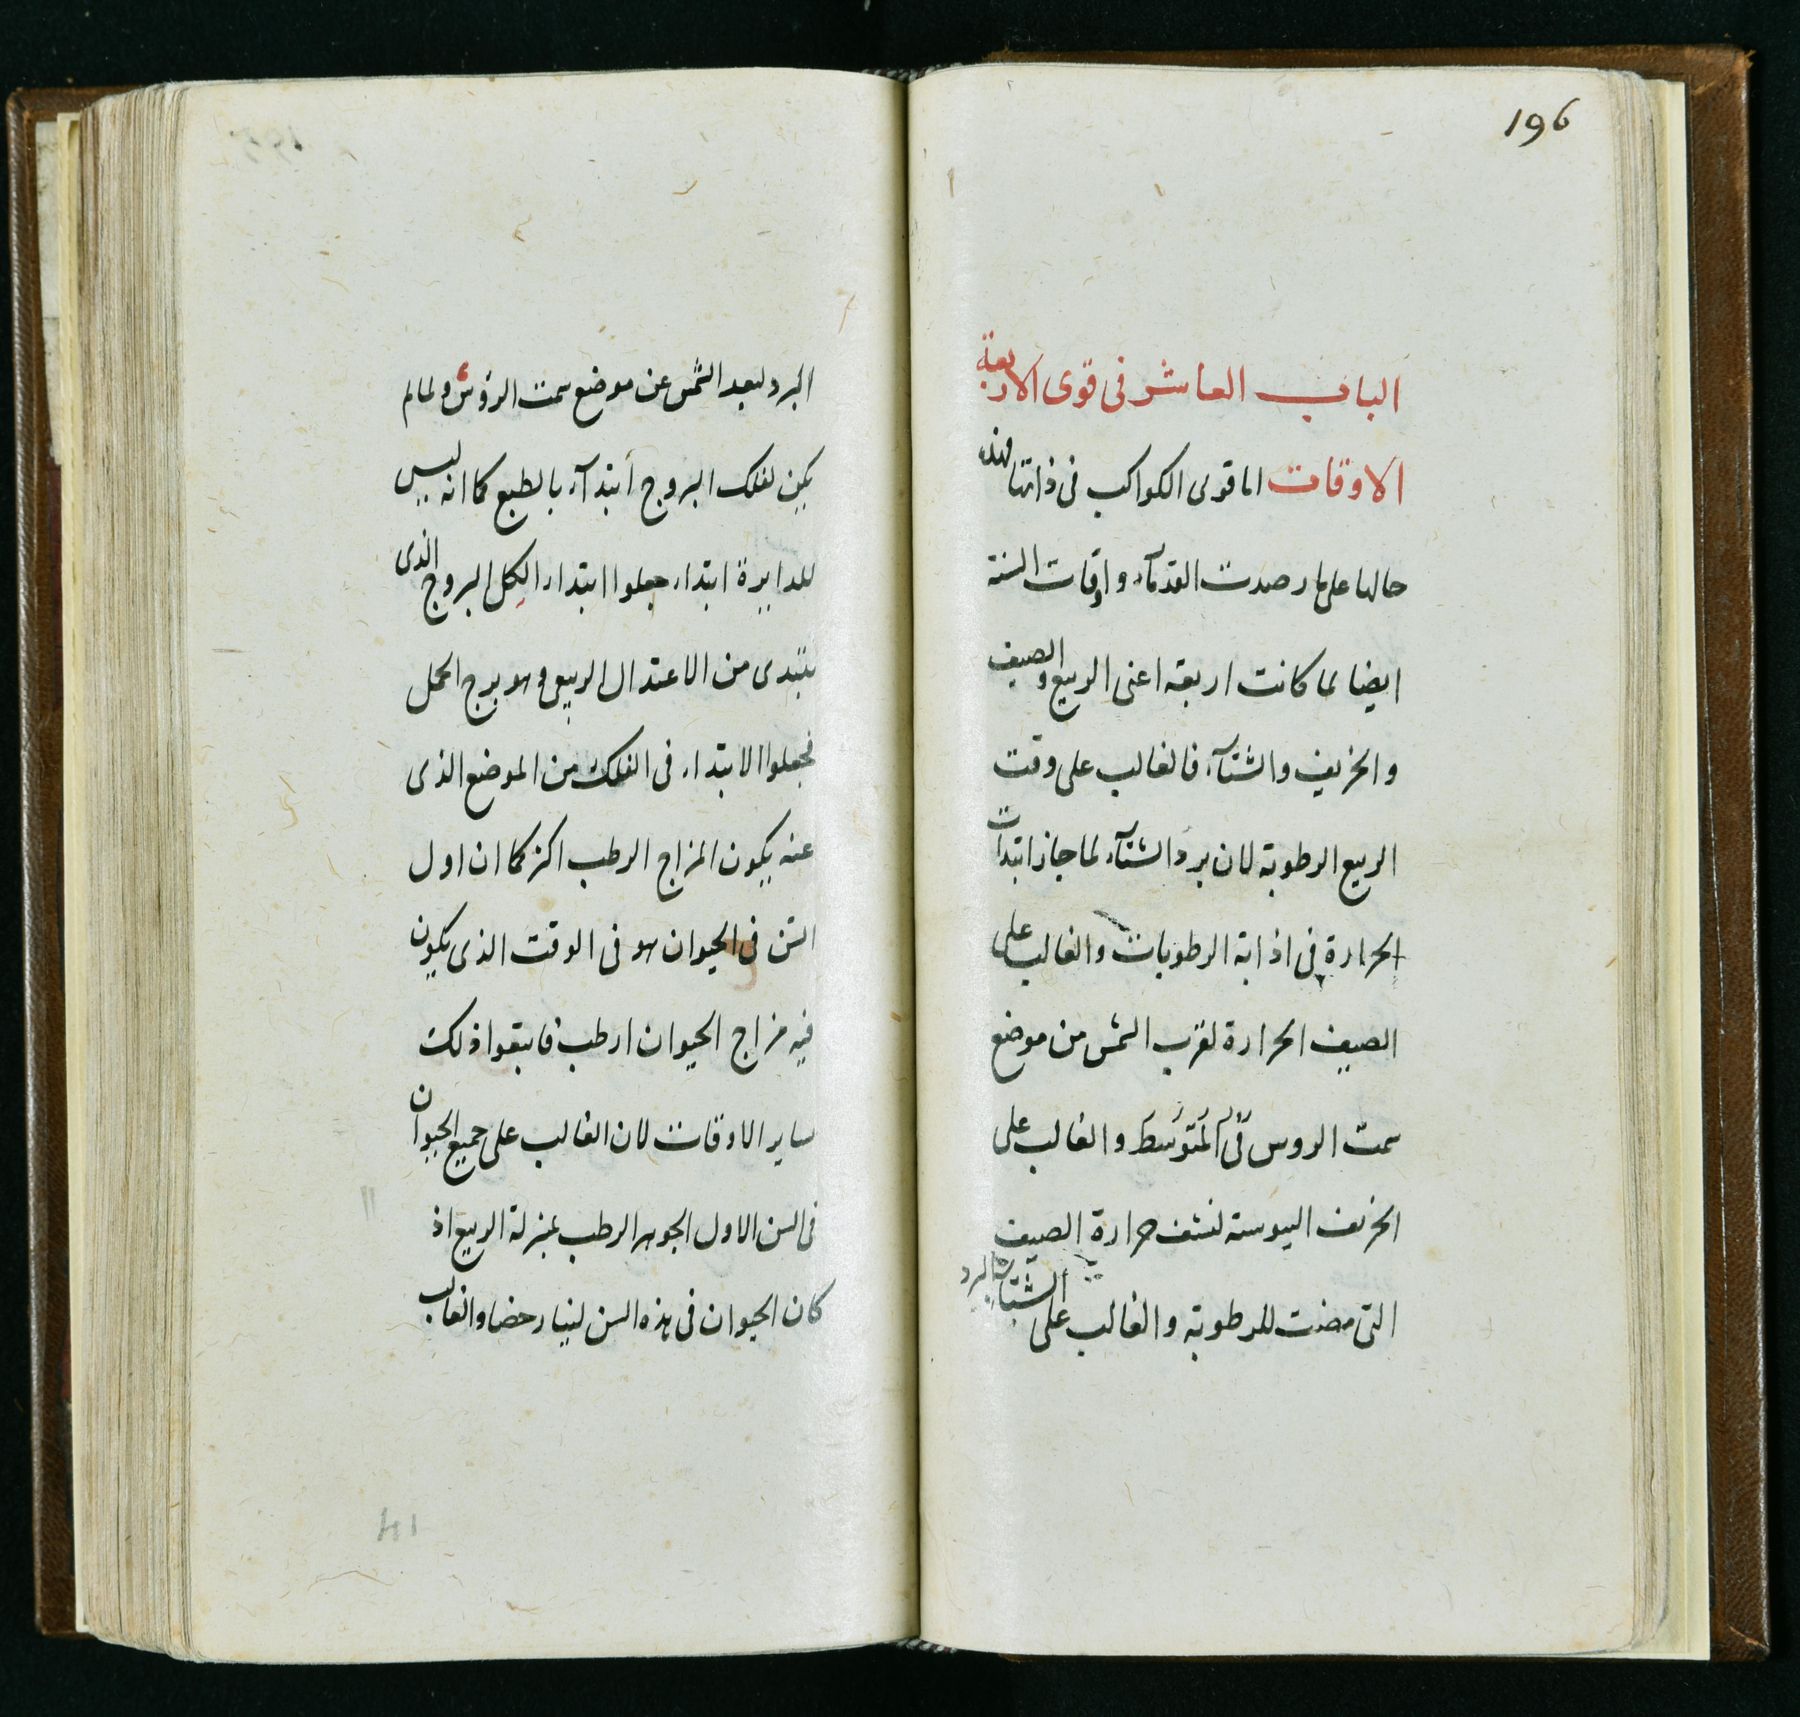 196
الباب العاشر فى قوى الاربعة
الاوقات اما قوى الكواكب فى ذاتها فهذه
حالها على ما رصدت القدمآء واوقات السنة
ايضا لما كانت اربعة اعنى الربيع والصيف
والخريف والشتآء فالغالب على وقت
الربيع الرطوبة لان برد الشتآء لما جاز ابتدات
الحرارة فى اذابة الرطوبات والغالب على
الصيف الحرارة لقرب الشمس من موضع
سمت الروس فى المتوسط والغالب على
الخريف اليبوسة لنشف حرارة الصيف
التى مضت للرطوبة والغالب على الشتآء البرد
البرد لبعد الشمس عن موضع سمت الرؤس ولما لم
يكن لفلك البروج ابتدآء بالطبع كما انه ليس
للدايرة ابتداء جعلوا ابتداء الكل البروج الذى
يبتدى من الاعتدال الربيعى وهو برج الحمل
فجعلوا الابتداء فى الفلك من الموضع الذى
عنه يكون المزاج الرطب اكثر كما ان اول
السن فى الحيوان هو فى الوقت الذى يكون
فيه مزاج الحيوان ارطب فابتغوا ذلك
ساير الاوقات لان الغالب على جميع الحيوان
فى السن الاول الجوهر الرطب بمنزلة الربيع اذ
كان الحيوان فى هذه السن لينا رخصا والغالب